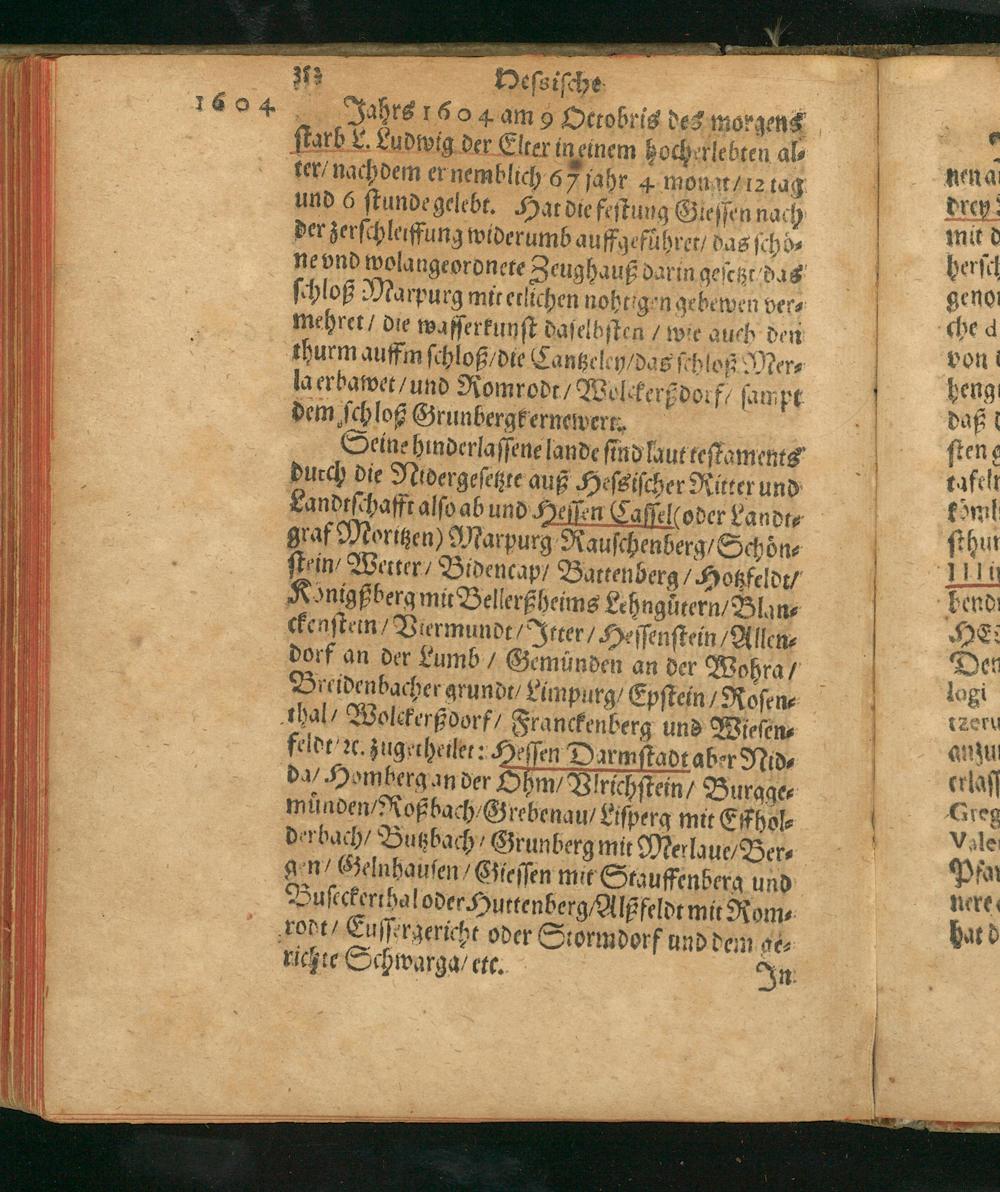 353 Hessische
1604
Jahrs 1604 am 9 Octobris des morgens
starb L. Ludwig der Elter in einem hocherlebten al-
ter/ nachdem er nemblich 67 jahr 4 monat/ 12 tag
und 6 stunde gelebt. Hat die festung Giessen nach
der zerschleiffung widerumb auffgeführet/ das schö-
ne vnd wolangeordnete Zeughauß darin gesetzt/ das
schloß Marpurg mit etlichen nohtigen gebewen ver-
mehret/ die wasserkunst daselbsten/ wie auch den
thurm auffm schloß/ die Cantzeley/ das schloß Mer-
la erbawet/ und Romrodt/ Wolckerßdorf/ sampt
dem schloß Grunbergk ernewert.
Seine hinderlassene lande sind laut testaments
durch die Nidergesetzte auß Hessischer Ritter und
Landtschafft also ab und Hessen Cassel (oder Landt-
graf Moritzen) Marpurg Rauschenberg/ Schön-
stein/ Wetter/ Bidencap/ Battenberg/ Hotzfeldt/
Königßberg mit Bellerßheims Lehngütern/ Blan-
ckenstein/ Viermundt/ Itter/ Hessenstein/ Allen-
dorf an der Lumb/ Gemünden an der Wohra/
Breidenbacher grundt/ Limpurg/ Epstein/ Rosen-
thal/ Wolckerßdorf/ Franckenberg und Wiesen-
feldt/ ꝛc. zugetheilet: Hessen Darmstadt aber Nid-
da/ Homberg an der Ohm/ Vlrichstein/ Burgge-
münden/ Roßbach/ Grebenau/ Lisperg mit Effhol-
derbach/ Butzbach/ Grunberg mit Merlaue/ Ber-
gen/ Gelnhausen/ Giessen mit Stauffenberg und
Buseckerthal oder Huttenberg/ Alßfeldt mit Rom-
rodt/ Eussergericht oder Stormdorf und dem ge-
richte Schwarga/ etc.
In
nen
drey
mit
von
daß
III
HE
Den
logi
Greg
Vale
hat